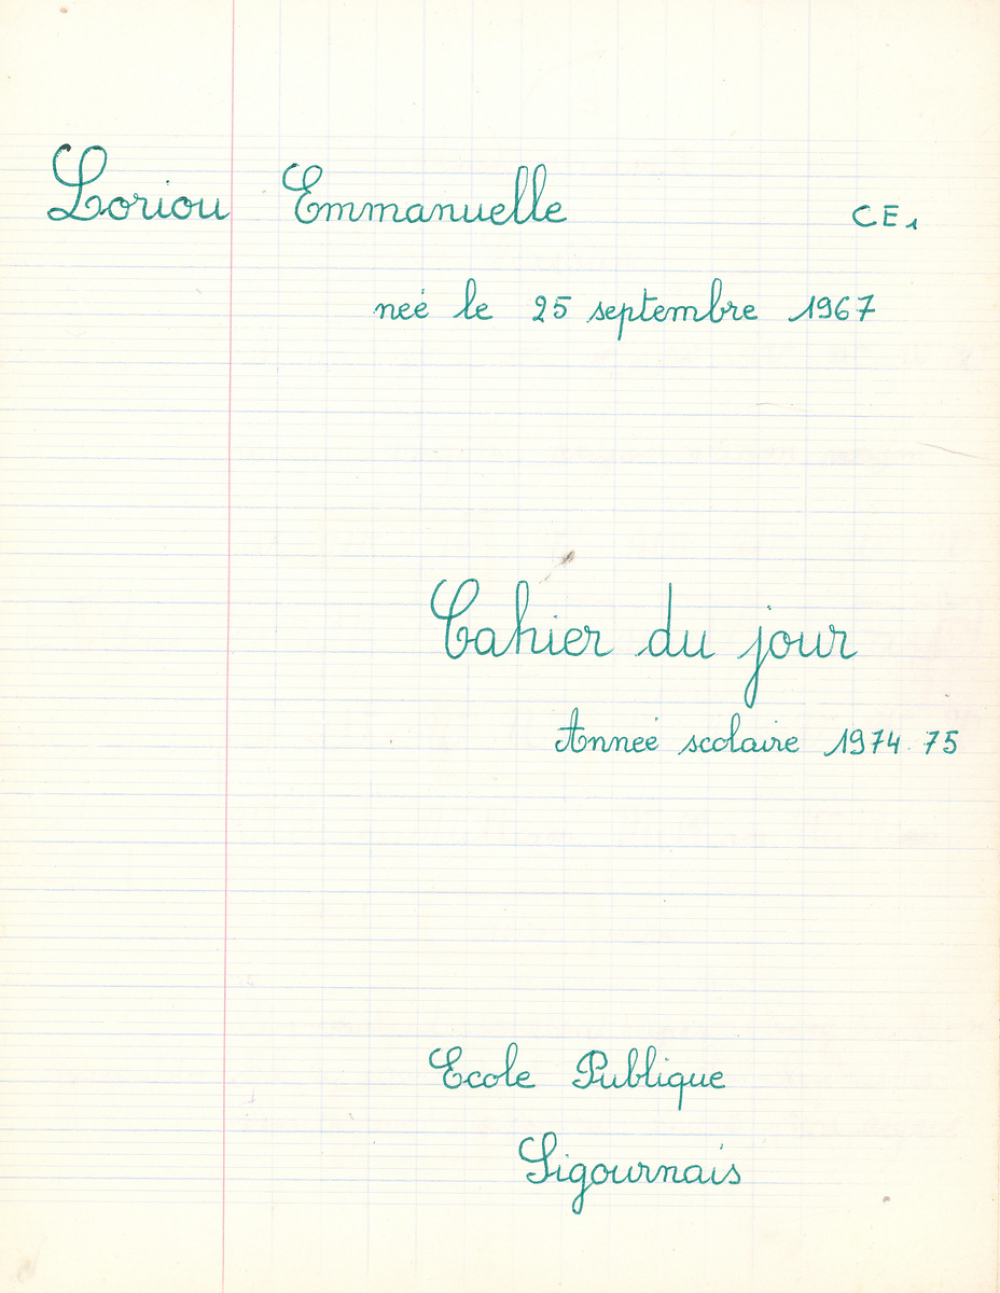 Loriou Emmanuelle CE1
née le 25 septembre 1967
Cahier du jour
Année scolaire 1974.75
Ecole Publique
Sigournais